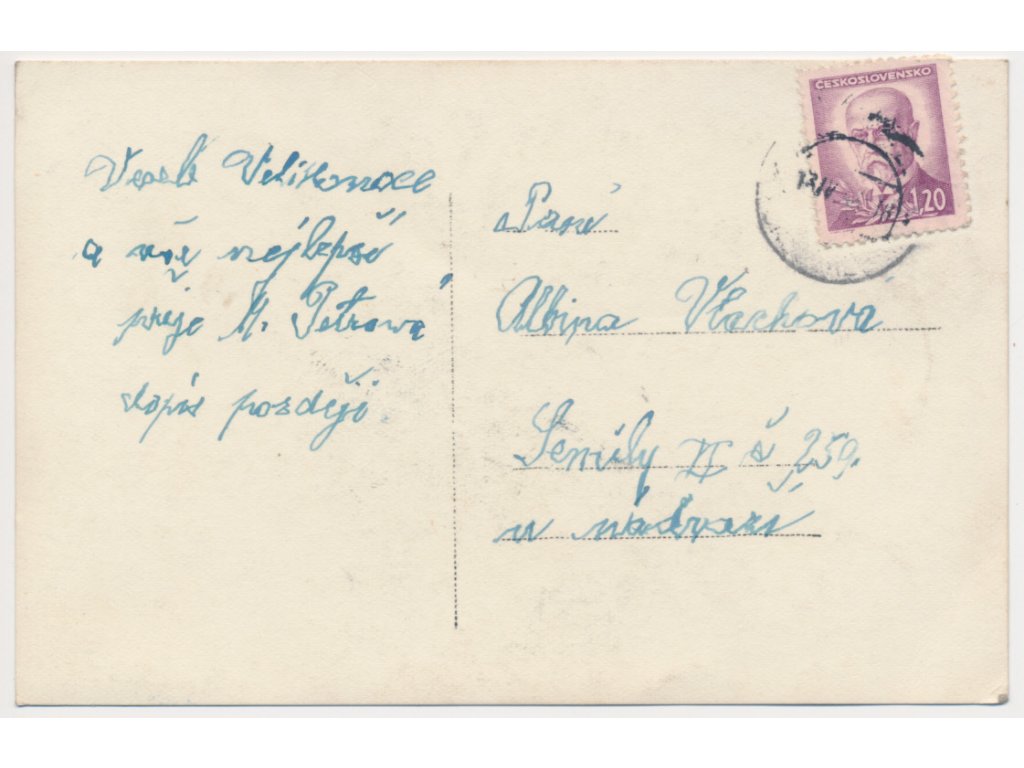 Veselé Velikonoce
a vše nejlepší
přeje M. Petrová
dopis později
ČESKOSLOVENSKO
1,20
13/IV
Paní
Albina Vlachova
Semily II č 259.
u nádraží